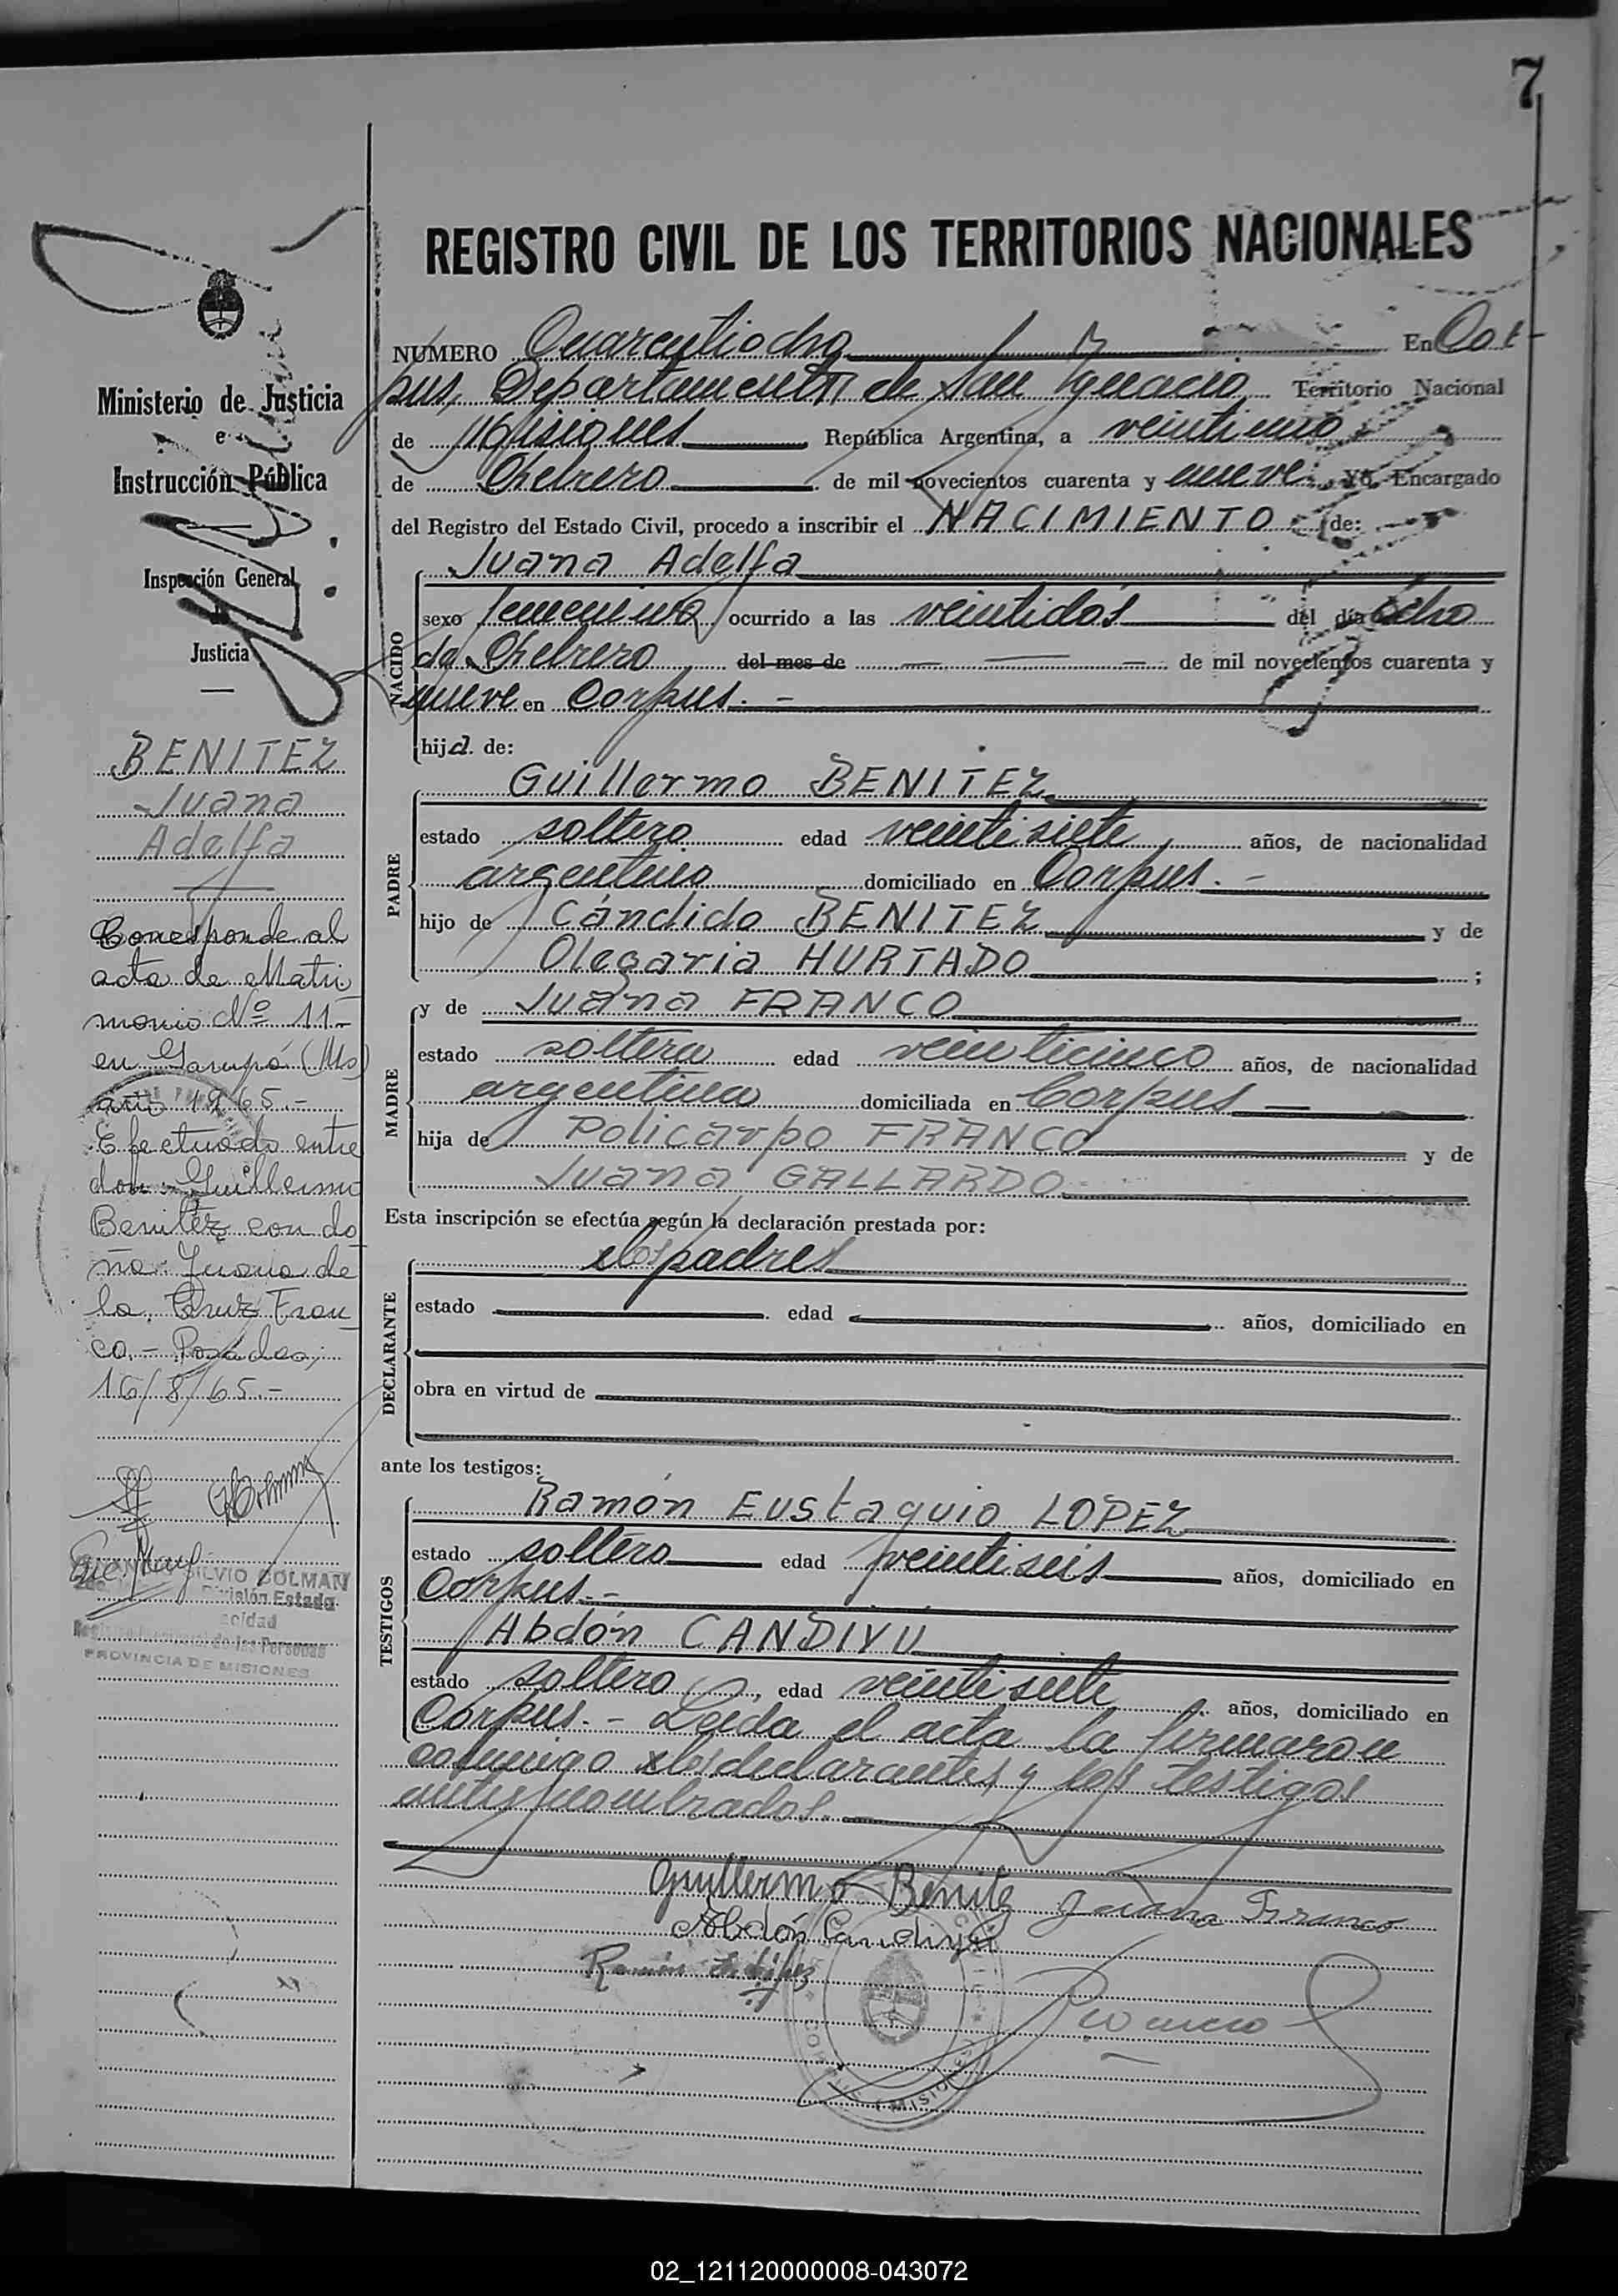 7
REGISTRO CIVIL DE LOS TERRITORIOS NACIONALES
Ministerio de Justicia
e
Instrucción Pública
Inspección General
de
Justicia
BENITEZ
Juana
Adelfa
Corresponde al
acta de Matri
monio Nº 11-
en Garupá (Ms)
año 1965.-
Efectuado entre
don Guillermo
Benitez con do
ña Juana de
la Cruz Fran
co.- Posadas,
16/8/65.-
SILVIO COLMAN
División Estado
Registro Provincial de las Personas
PROVINCIA DE MISIONES
NUMERO Cuarentiocho En Cor-
pus, Departamento de San Ignacio Territorio Nacional
de Misiones República Argentina, a veintiuno
de Febrero de mil novecientos cuarenta y nueve: Yo, Encargado
del Registro del Estado Civil, procedo a inscribir el NACIMIENTO de:
Juana Adelfa
NACIDO
sexo femenino ocurrido a las veintidós del día ocho
de Febrero del mes de de mil novecientos cuarenta y
nueve en Corpus.-
hija de:
Guillermo BENITEZ
PADRE
estado soltero edad veintisiete años, de nacionalidad
argentino domiciliado en Corpus.-
hijo de Cándido BENITEZ y de
Olegaria HURTADO ;
y de Juana FRANCO
MADRE
estado soltera edad veinticinco años, de nacionalidad
argentina domiciliada en Corpus
hija de Policarpo FRANCO y de
Juana GALLARDO
Esta inscripción se efectúa según la declaración prestada por:
los padres
DECLARANTE
estado edad años, domiciliado en
obra en virtud de
ante los testigos:
Ramón Eustaquio LOPEZ
TESTIGOS
estado soltero edad veintiseis años, domiciliado en
Corpus.-
Abdón CANDIYU
estado soltero, edad veintisiete años, domiciliado en
Corpus.- Leida el acta la firmaron
conmigo los declarantes y los testigos
antes nombrados.
Guillermo Benitez Juana Franco
Abdón Candiyú
Ramón E. López
MISIONES
02_121120000008-043072